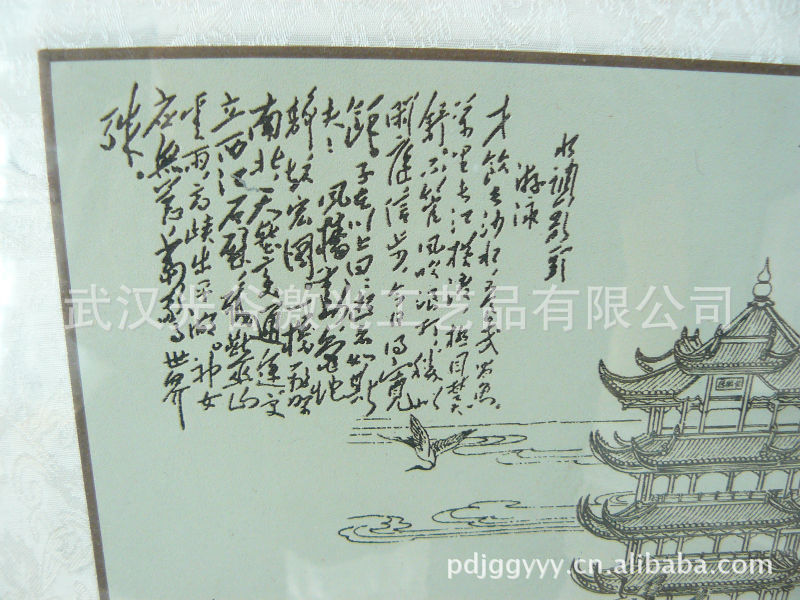 水调歌头
游泳
才饮长沙水,又食武昌鱼。
万里长江横渡,极目楚天
舒。不管风吹浪打,胜似
闲庭信步,今日得宽
馀。子在川上曰:逝者如斯
夫!风樯动,龟蛇
静,起宏图。一桥飞架
南北,天堑变通途。更
立西江石壁,截断巫山
云雨,高峡出平湖。神女
应无恙,当惊世界
殊。
武汉光谷激光工艺品有限公司
pdjggyyy.cn.alibaba.com